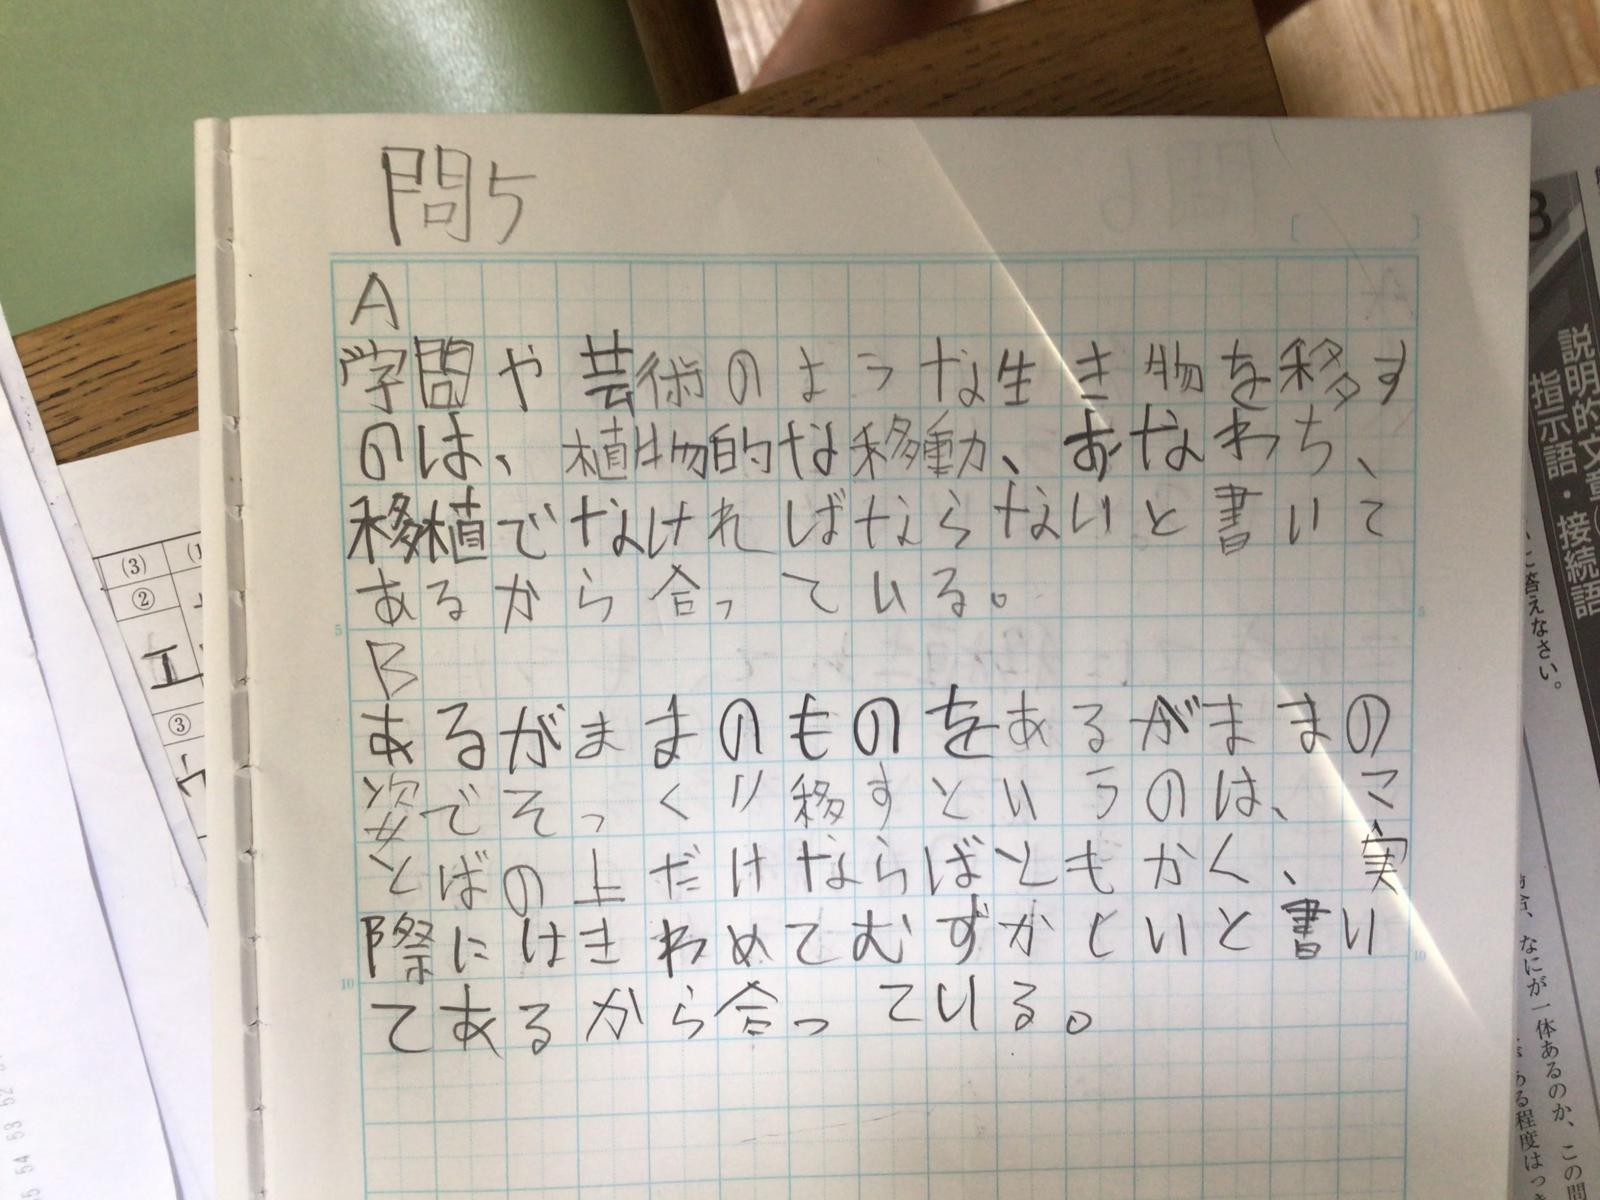 問5
A
学問や芸術のような生き物を移す
のは、植物的な移動、おなわち、
移植でなければならないと書いて
あるから合っている。
B
あるがままのものをあるがままの
姿でそっくり移すというのは、こ
とばの上だけならばともかく、実
際にはきわめてむずかしいと書い
てあるから合っている。
5
10
5
10
(3)
②
エ
③
説明的文章
指示語・接続語
に答えなさい。
なにが一体あるのか、この問
ある程度は
54 53 52